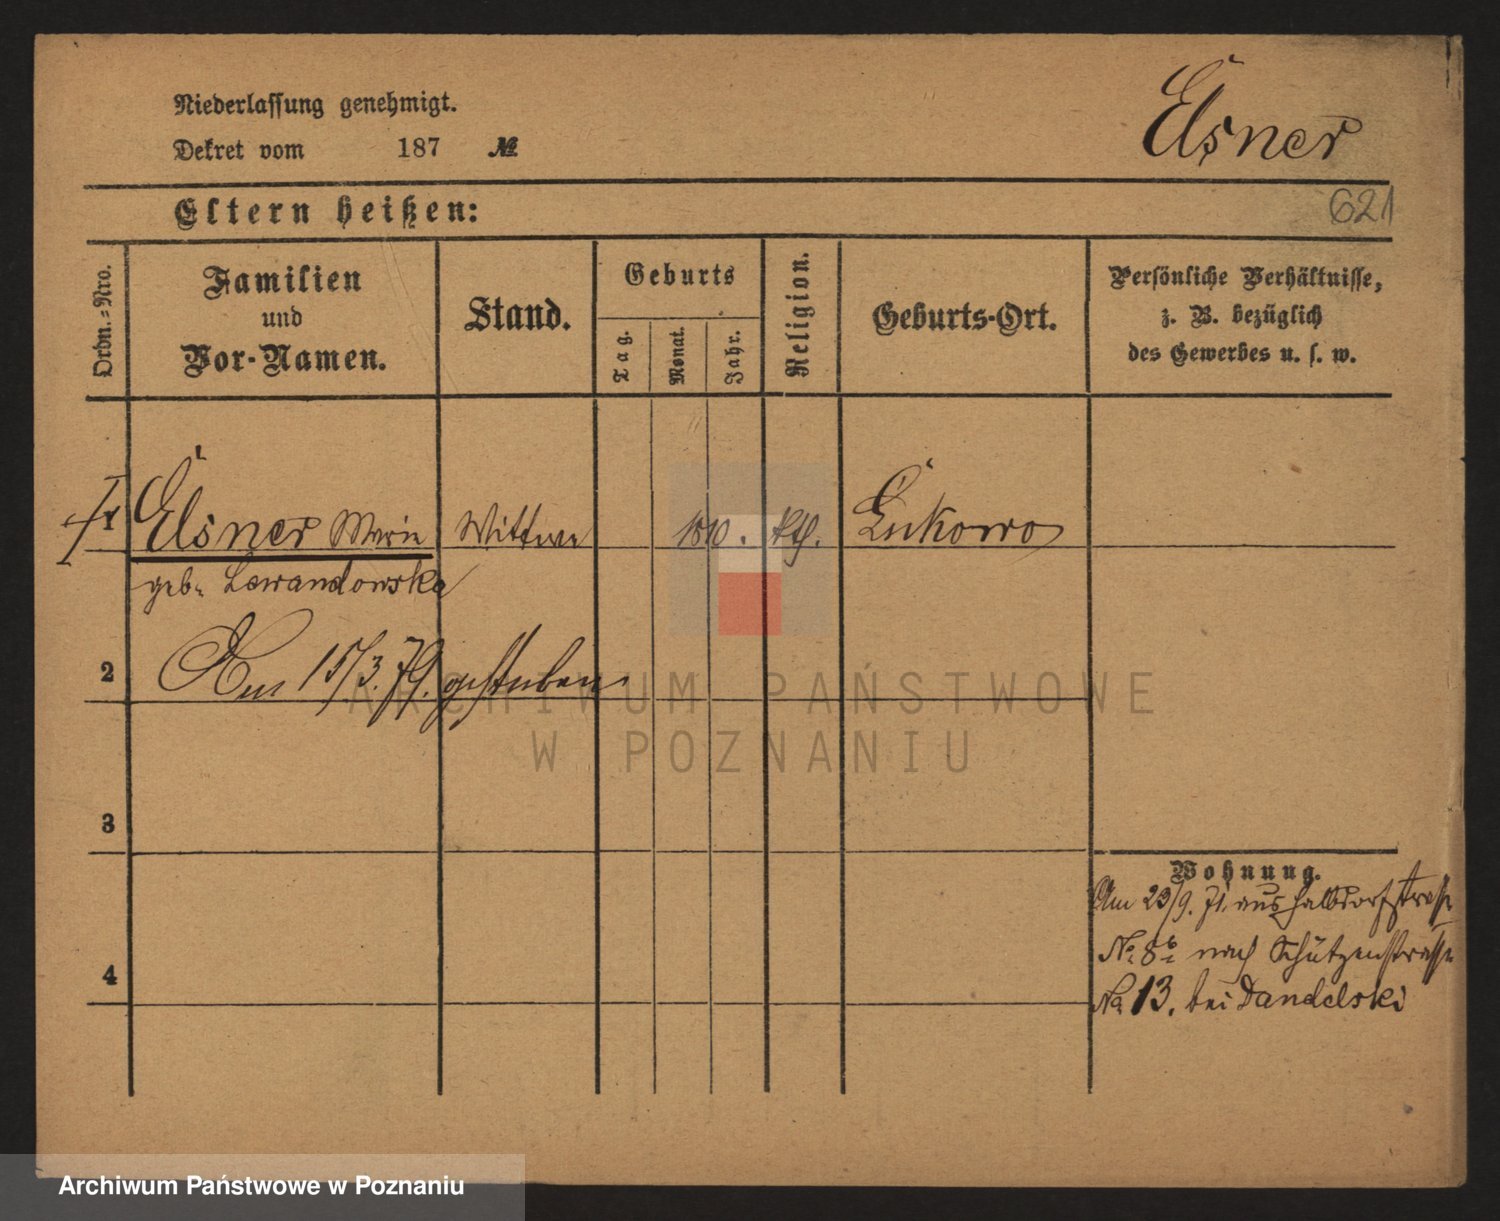 Niederlassung genehmigt.
Dekret vom 187 №
Elsner
621
Eltern heißen:
Ordn.-Nro.
Familien
und
Vor-Namen.
Stand.
Geburts
Tag.
Monat.
Jahr.
Religion.
Geburts-Ort.
Persönliche Verhältnisse,
z. B. bezüglich
des Gewerbes u. s. w.
1 Elsner Marie Wittwe 1810. kth. Lukowo
geb. Lewandowska
2 Am 15/3. 79. gestorben
3
4
Wohnung.
Am 23/9. 71. aus Halbdorfstrasse
No. 8b nach Schützenstrasse
No 13. bei Dandelski
ARCHIWUM PAŃSTWOWE
W POZNANIU
Archiwum Państwowe w Poznaniu